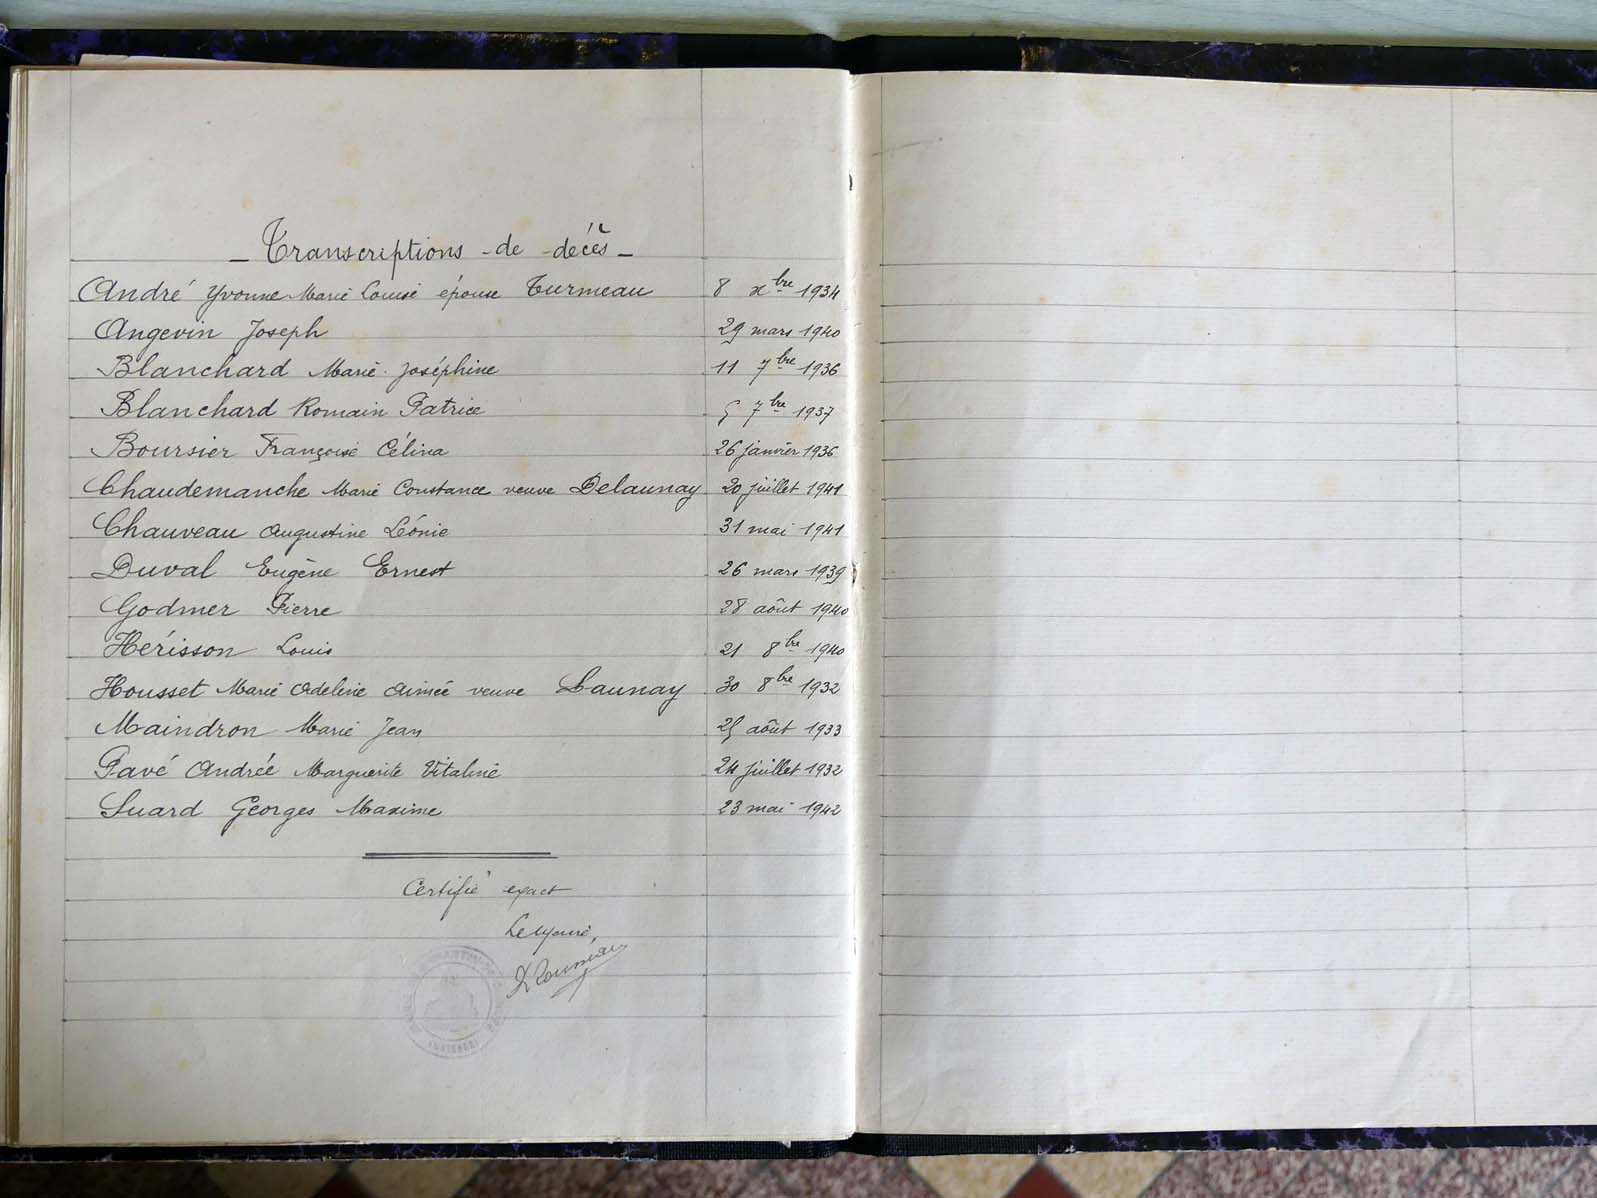 - Transcriptions - de - décès -
André Yvonne Marie Louise épouse Turmeau 8 xbre 1934
Angevin Joseph 29 mars 1940
Blanchard Marie Joséphine 11 7bre 1936
Blanchard Romain Patrice 5 7bre 1937
Boursier Françoise Célina 26 janvier 1936
Chaudemanche Marie Constance veuve Delaunay 20 juillet 1941
Chauveau Augustine Léonie 31 mai 1941
Duval Eugène Ernest 26 mars 1939
Godmer Pierre 28 août 1940
Hérisson Louis 21 8bre 1940
Housset Marie Adeline Aimée veuve Launay 30 8bre 1932
Maindron Marie Jean 25 août 1933
Pavé Andrée Marguerite Vitaline 24 juillet 1932
Suard Georges Maxime 23 mai 1942
Certifié exact
Le Maire,